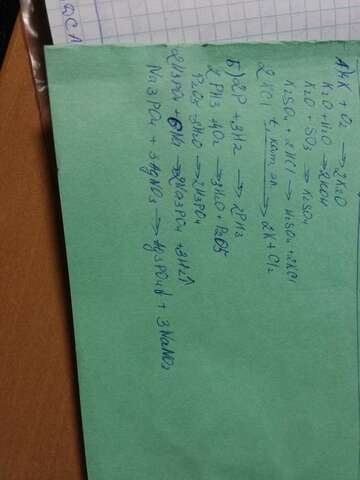 А) 4K + O2 → 2K2O
K2O + H2O → 2KOH
K2O + SO3 → K2SO4
K2SO4 + 2HCl → H2SO4 + 2KCl
2 KCl → 2K + Cl2
Б) 2P + 3H2 → 2PH3
2 PH3 + 4O2 → 3H2O + P2O5
P2O5 + 3H2O → 2H3PO4
2H3PO4 + 6Na → 2Na3PO4 + 3H2↑
Na3PO4 + 3AgNO3 → Ag3PO4↓ + 3NaNO3